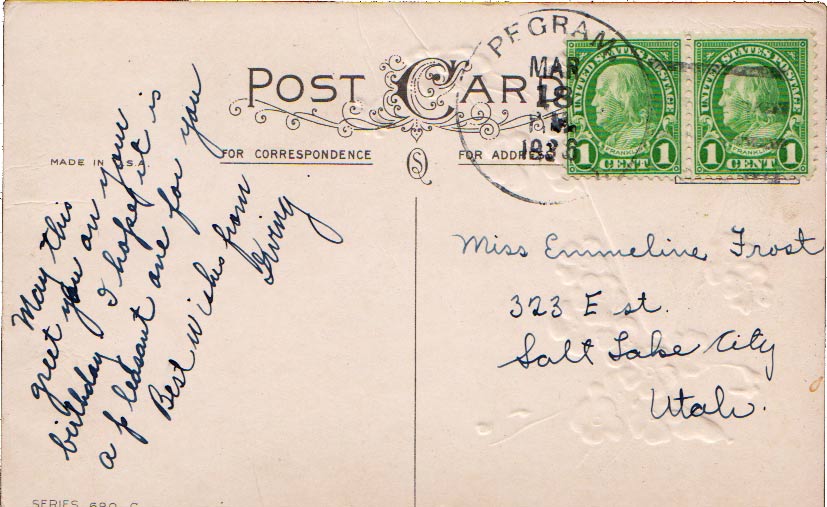 POST CARD
MADE IN U.S.A.
FOR CORRESPONDENCE
FOR ADDRESS
S
PEGRAM
MAR
18
1936
UNITED STATES POSTAGE
FRANKLIN
1 CENT 1
UNITED STATES POSTAGE
FRANKLIN
1 CENT 1
May this
greet you on your
birthday I hope it is
a pleasant one for you
Best wishes from
Irving
Miss Emmeline Frost
323 E st.
Salt Lake City
Utah.
SERIES 690 C